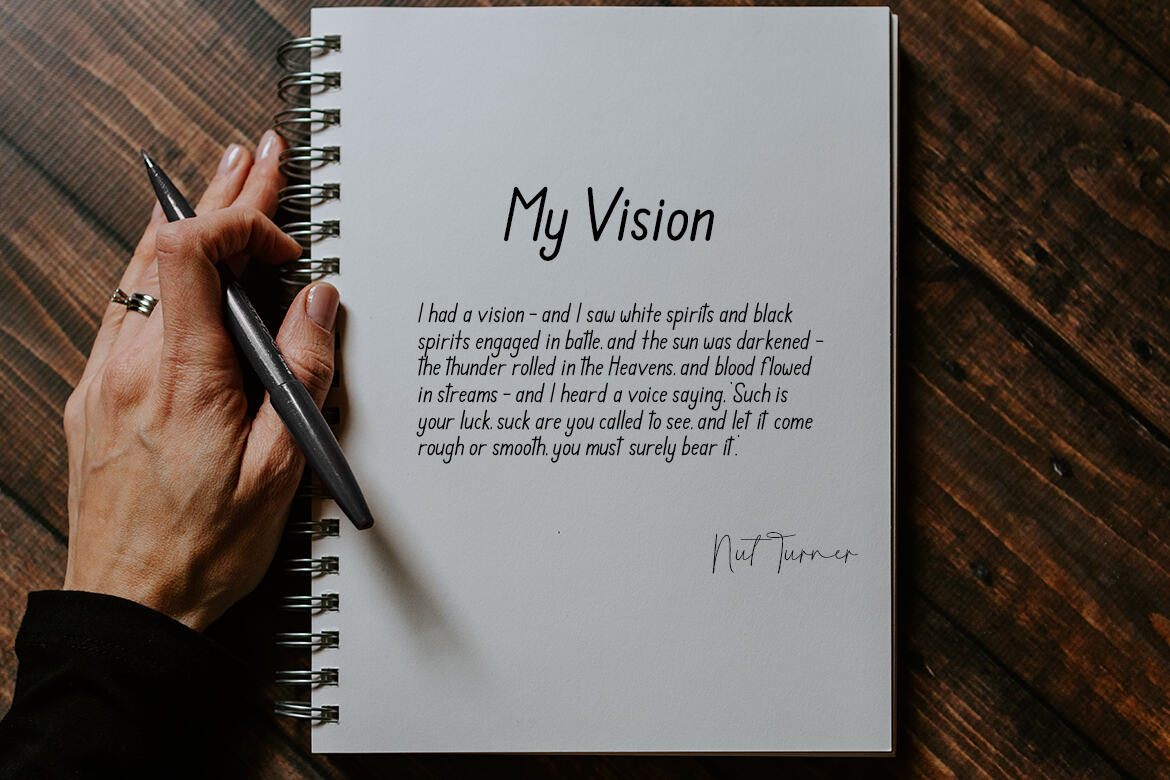 My Vision
I had a vision - and I saw white spirits and black
spirits engaged in battle, and the sun was darkened -
the thunder rolled in the Heavens, and blood flowed
in streams - and I heard a voice saying, 'Such is
your luck, suck are you called to see, and let it come
rough or smooth, you must surely bear it.'
Nut Turner